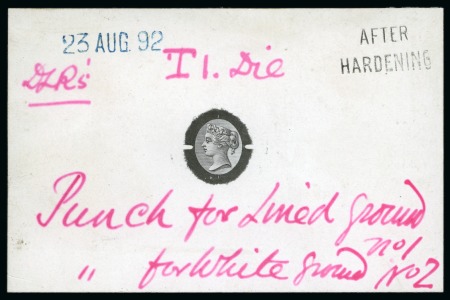 23 AUG. 92
AFTER
HARDENING
DLR's
I I. Die
Punch for Lined ground
No 1
" for White ground No 2